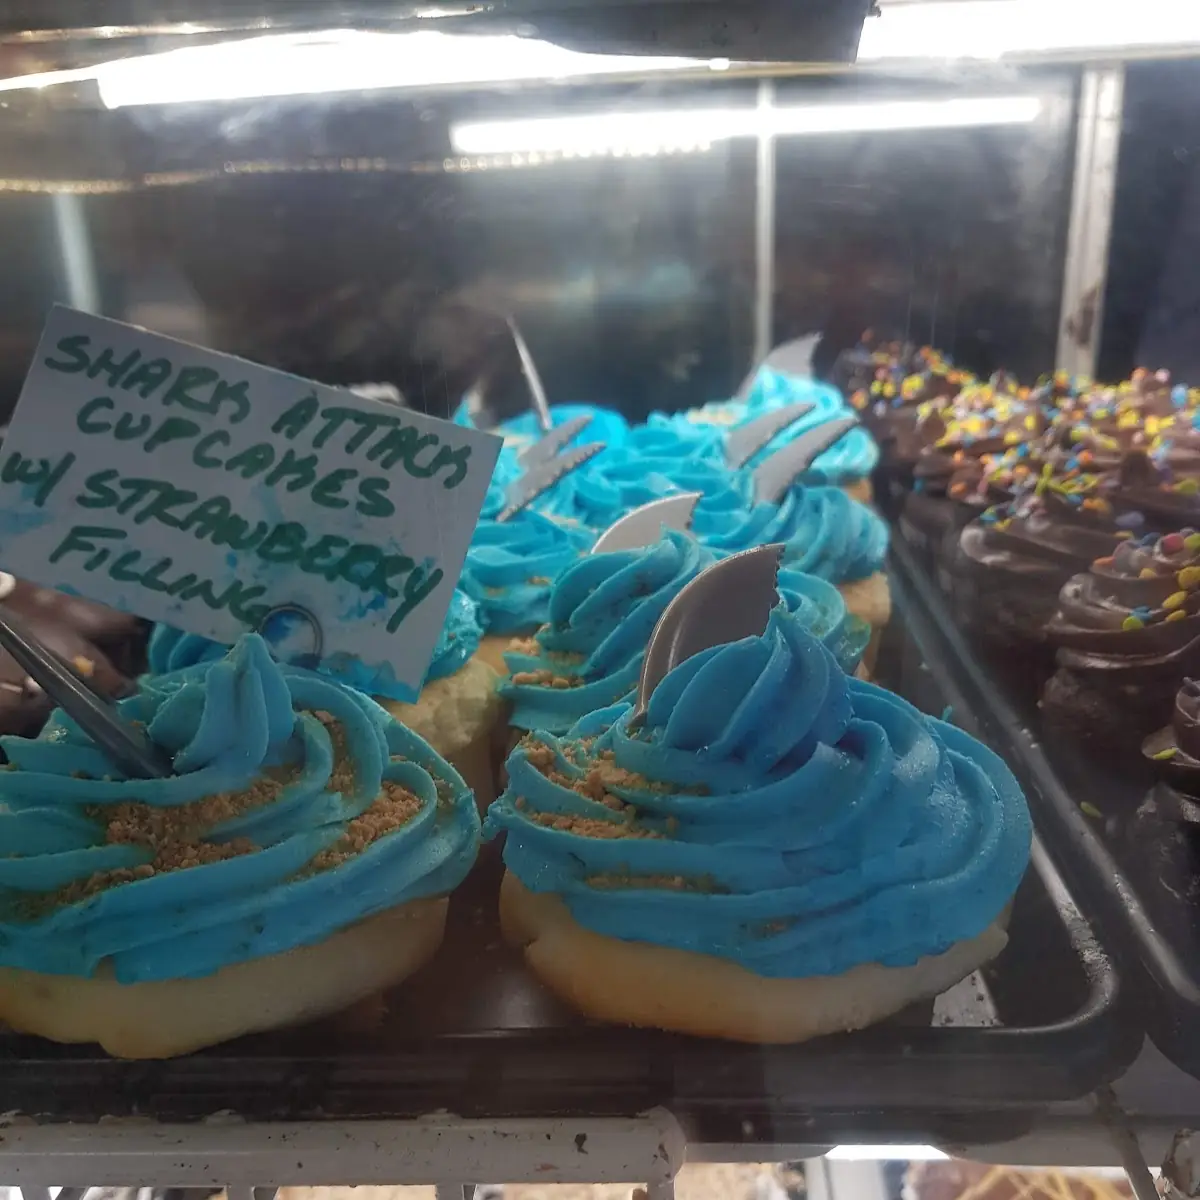 SHARK ATTACK
CUPCAKES
W/ STRAWBERRY
FILLING